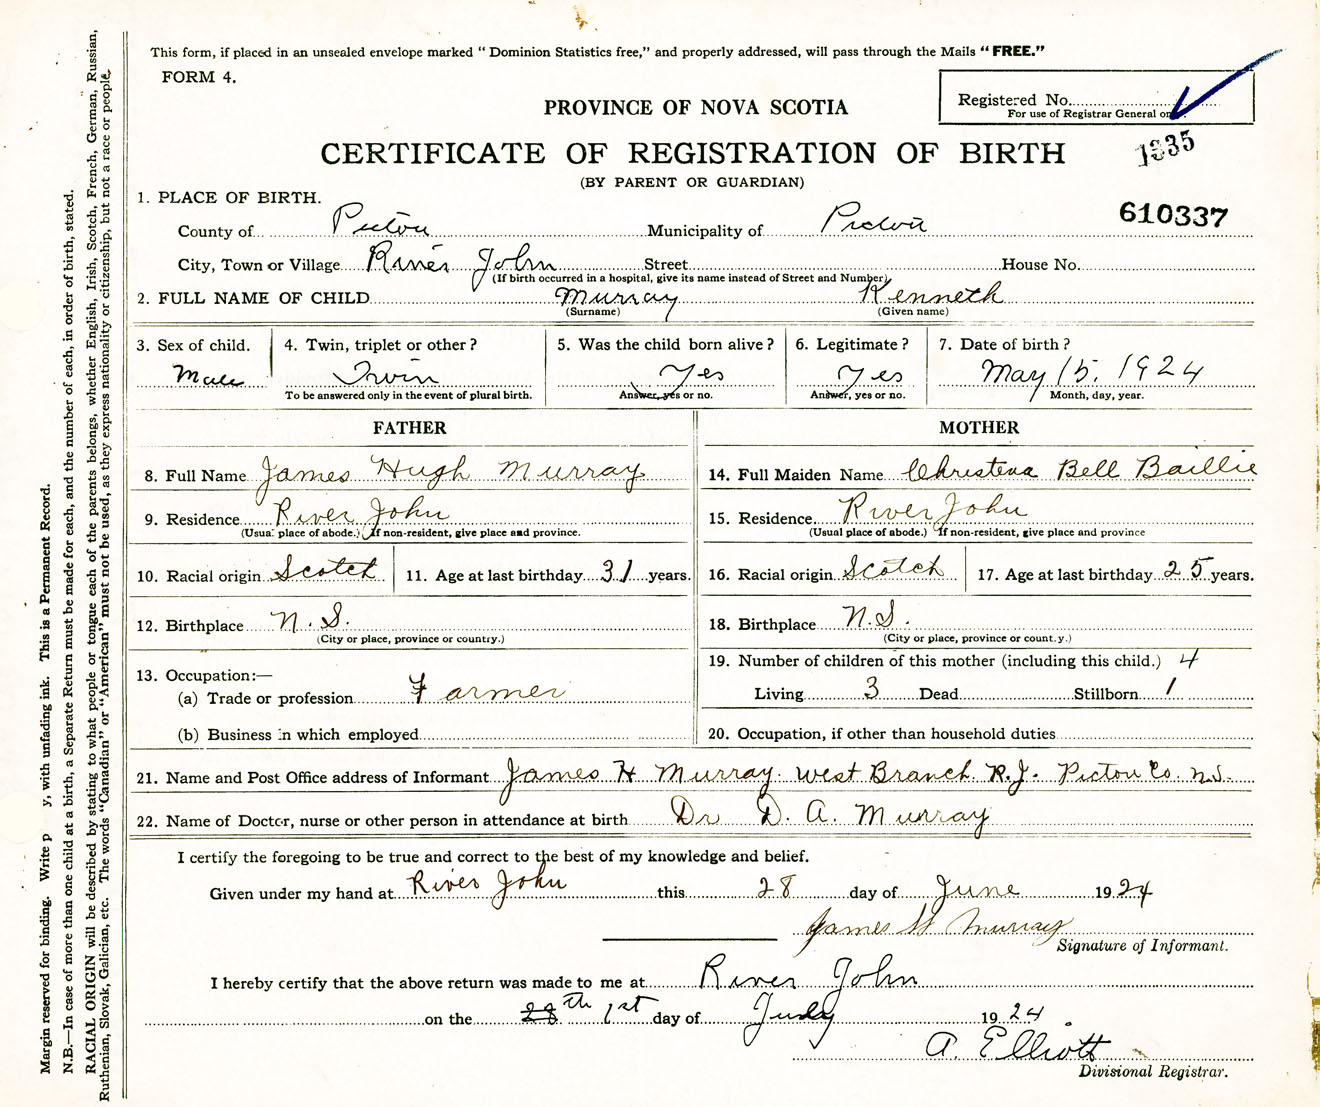 This form, if placed in an unsealed envelope marked “ Dominion Statistics free,” and properly addressed, will pass through the Mails “ FREE.”
FORM 4.
Registered No.
For use of Registrar General on
PROVINCE OF NOVA SCOTIA
CERTIFICATE OF REGISTRATION OF BIRTH
1335
(BY PARENT OR GUARDIAN)
1. PLACE OF BIRTH.
610337
County of Pictou Municipality of Pictou
City, Town or Village River John Street House No.
(If birth occurred in a hospital, give its name instead of Street and Number)
2. FULL NAME OF CHILD Murray Kenneth
(Surname) (Given name)
3. Sex of child. 4. Twin, triplet or other ? 5. Was the child born alive ? 6. Legitimate ? 7. Date of birth ?
Male Twin Yes Yes May 15. 1924
To be answered only in the event of plural birth. Answer, yes or no. Answer, yes or no. Month, day, year.
FATHER MOTHER
8. Full Name James Hugh Murray 14. Full Maiden Name Christena Bell Baillie
9. Residence River John 15. Residence River John
(Usual place of abode.) If non-resident, give place and province. (Usual place of abode.) If non-resident, give place and province
10. Racial origin Scotch 11. Age at last birthday 31 years. 16. Racial origin Scotch 17. Age at last birthday 25 years.
12. Birthplace N. S. 18. Birthplace N.S.
(City or place, province or country.) (City or place, province or count.y.)
13. Occupation:— 19. Number of children of this mother (including this child.) 4
(a) Trade or profession Farmer Living 3 Dead Stillborn 1
(b) Business in which employed 20. Occupation, if other than household duties
21. Name and Post Office address of Informant James H Murray. West Branch R.J. Pictou Co. N.S.
22. Name of Doctor, nurse or other person in attendance at birth Dr D. A. Murray
I certify the foregoing to be true and correct to the best of my knowledge and belief.
Given under my hand at River John this 28 day of June 1924
James H Murray
Signature of Informant.
I hereby certify that the above return was made to me at River John
on the 28th 1st day of July 1924.
A. Elliott
Divisional Registrar.
Margin reserved for binding. Write p y, with unfading ink. This is a Permanent Record.
N.B.—In case of more than one child at a birth, a Separate Return must be made for each, and the number of each, in order of birth, stated.
RACIAL ORIGIN will be described by stating to what people or tongue each of the parents belongs, whether English, Irish, Scotch, French, German, Russian,
Ruthenian, Slovak, Galician, etc. The words “Canadian” or “American” must not be used, as they express nationality or citizenship, but not a race or people.